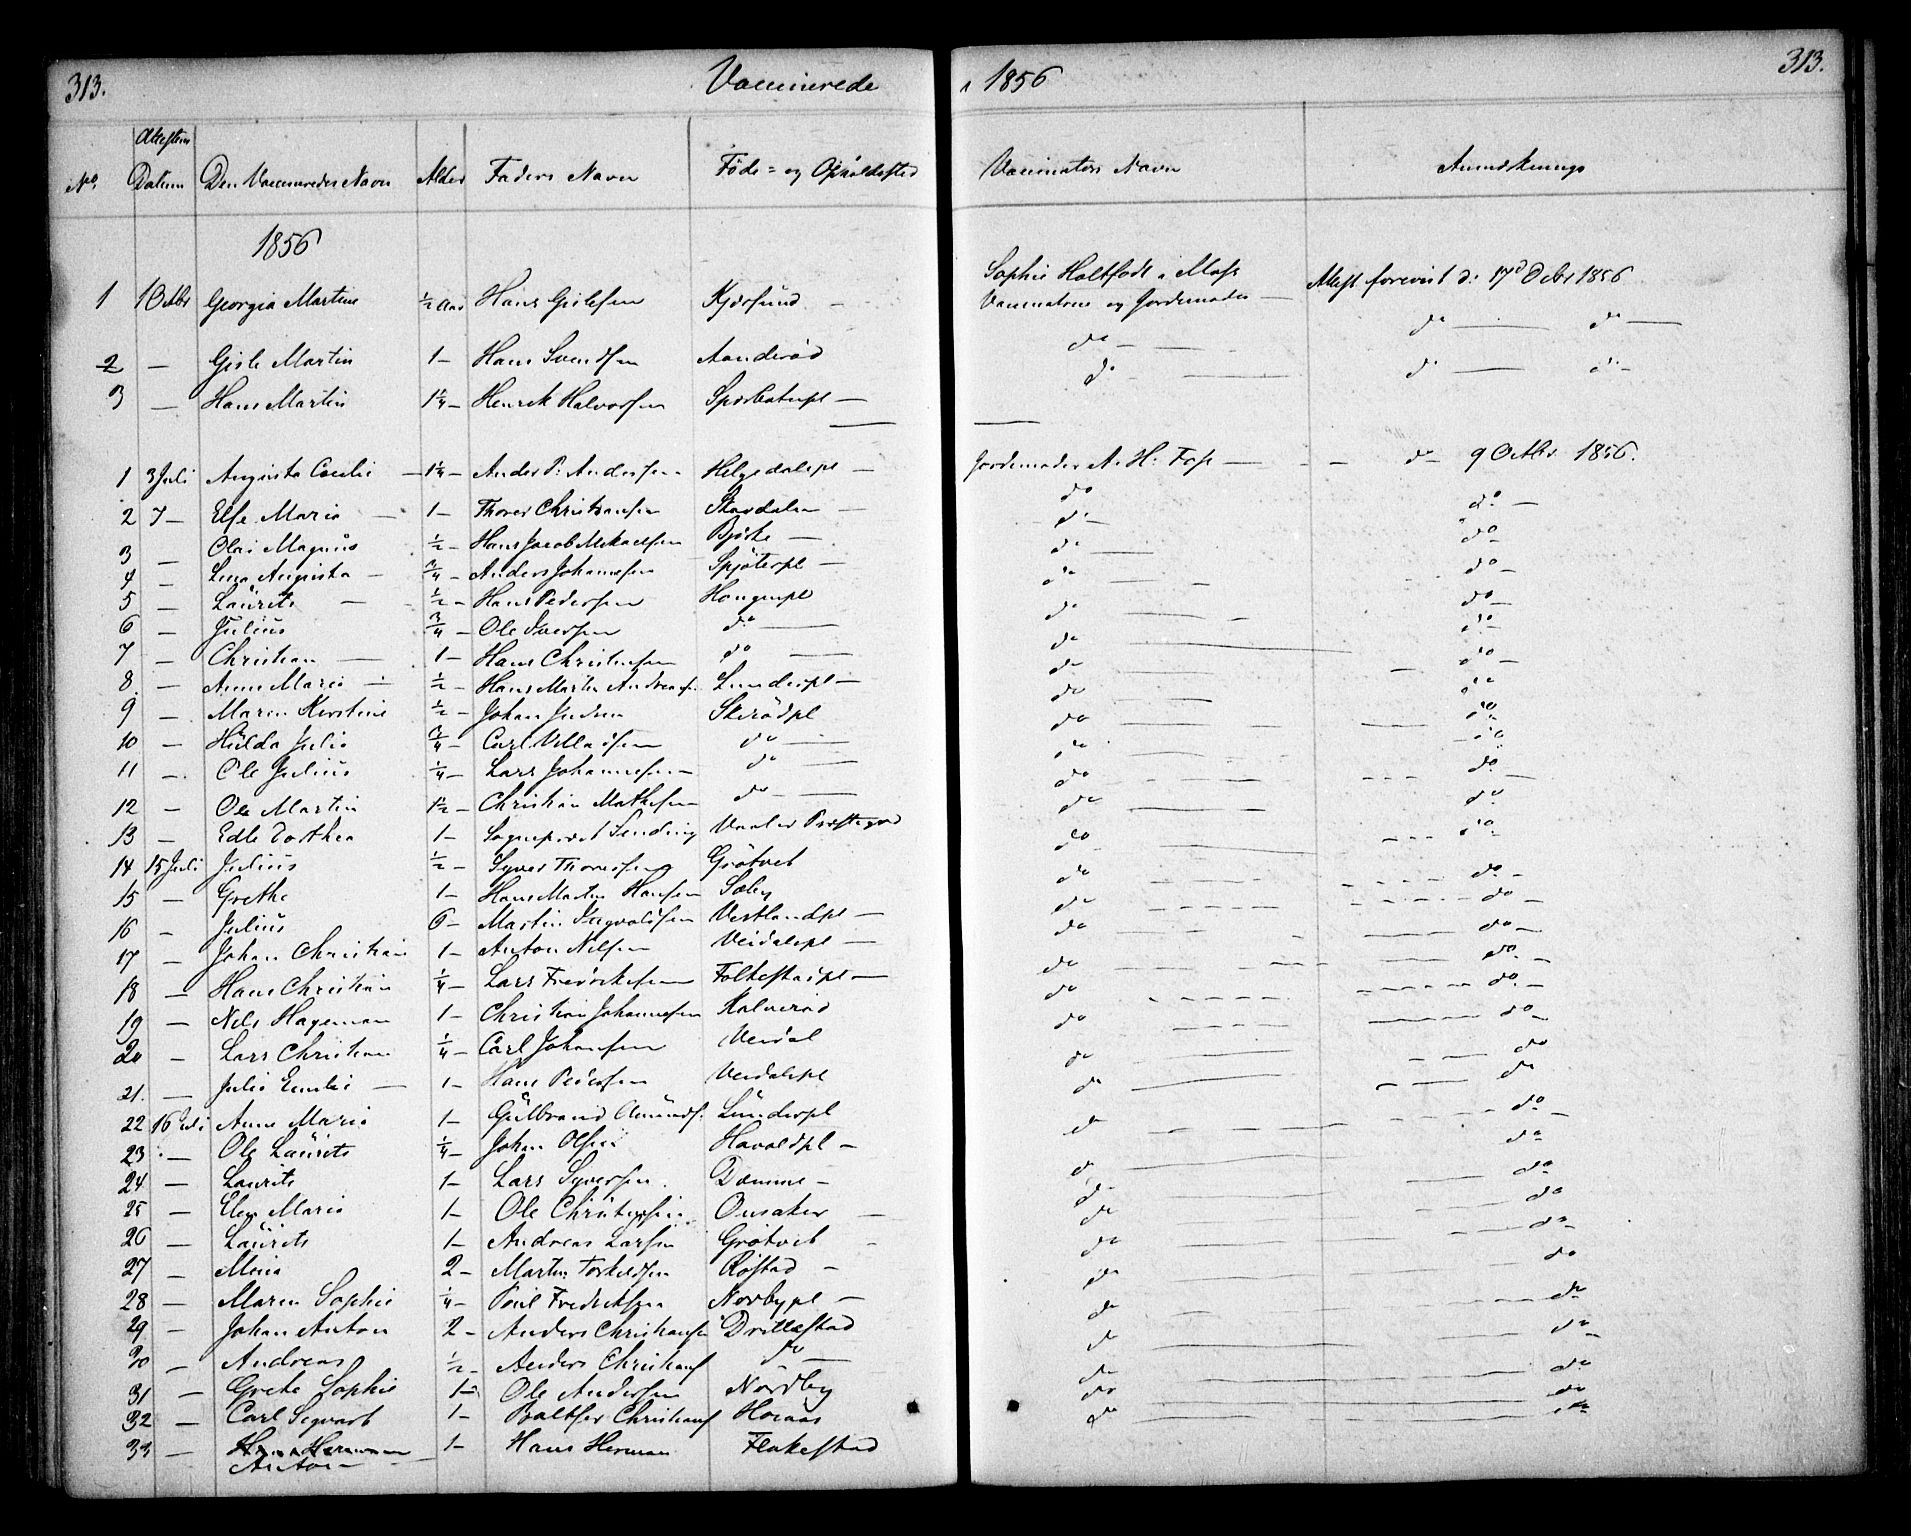 313. Vaccinerede i 1856 313.
No. Attestens Datum Den Vaccineredes Navn Alder Faders Navn Føde= og Opholdssted Vaccinators Navn Anmærkninger
1856
1 Georgia Martine ½ Aar Hans Gislesen Kjærsund Sophie Holtfodt i Moss Attest forevist d: 17d Octbr 1856
Vaccinatrice og Jordemoder
2 — Gisle Martin 1 — Hans Svendsen do — do do
3 — Hans Martin 1¼ — Henrik Halvorsen do do do
1 3 Juli Augusta Cecilie 1¼ — Anders P: Andersen Helgedalspl — Jordemoder A. H. Foss — do 9 Octbr 1856.
2 7 — Else Maria 1 — Thorer Christiansen Stavdalen — do do
3 — Olai Magnus ½ — Hans Jacob Mikaelsen Bjørke — do do
4 — Lina Augusta — ¾ — Anders Johannesen do do
5 — Laurits — ½ — Hans Pedersen Haugenpl do do
6 — Julius ¾ — Ole Iversen do do do
7 — Christian — 1 — Hans Christensen do do do
8 — Anne Maria ½ — Hans Martin Andreasen Lunderpl — do do
9 — Maren Kirstine ½ — Johan Jensen Skerødpl do do
10 — Hulda Julie ¾ — Carl Villadsen do do do
11 — Ole Julius ¼ — Lars Johannesen do do do
12 — Ole Martin 1½ — Christian Mathisen do do do
13 — Edle Dorthea 1 — Sogneprest Sending Vaaler Præstegrd do do
14 15 Juli Julius ½ — Syver Thoresen Grøtvet do do
15 — Grethe 1 — Hans Martin Hansen Sæby do do
16 — Julius 6 — Martin Ingvaldsen Vestlandpl — do do
17 — Johan Christian 1 — Anton Nilsen Veidalspl — do do
18 — Hans Christian ¼ — Lars Fredriksen Folkestadpl — do do
19 — Nils Hageman 1 — Christian Johannesen Kalverød do do
20 — Lars Christian ¼ — Carl Johansen Veidal do do
21. — Julie Emilie — 1 — Hans Pedersen Veidalspl do do
22 16 Juli Anne Maria 1 — Gulbrand Amunds: Lunderpl do do
23 — Ole Laurits ¼ — Johan Olsen Havoldpl — do do
24 — Laurits 1 — Lars Syversen Damme — do do
25 — Elen Maria 1 — Ole Christophersen Onsaker — do do
26 — Laurits 1 — Andreas Larsen Grøtvet do do
27 — Mina 2 — Martin Torkildsen Røstad — do do
28 — Maren Sophie ¼ — Paul Fredriksen Nordbypl — do do
29 — Johan Anton 2 — Anders Christiansen Drillestad do do
30 — Andreas ½ — Anders Christians do do do
31 — Grete Sophie 1 — Ole Andersen Nordby do do
32 — Carl Sigvart 1 — Baltser Christians Horaas do do
33 — Hans Herman 1 — Hans Herman Flakestad
Anton